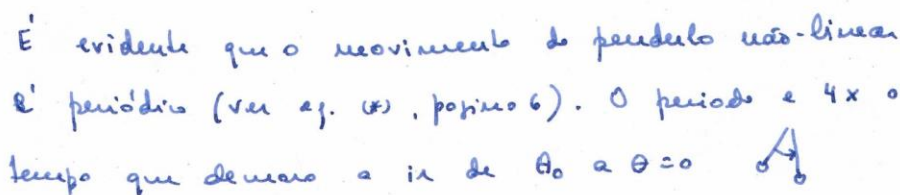 É evidente que o movimento do pendulo não-linear
é periódico (ver eq. (*), pagina 6). O periodo e 4 x o
tempo que demora a ir de θ₀ a θ=0